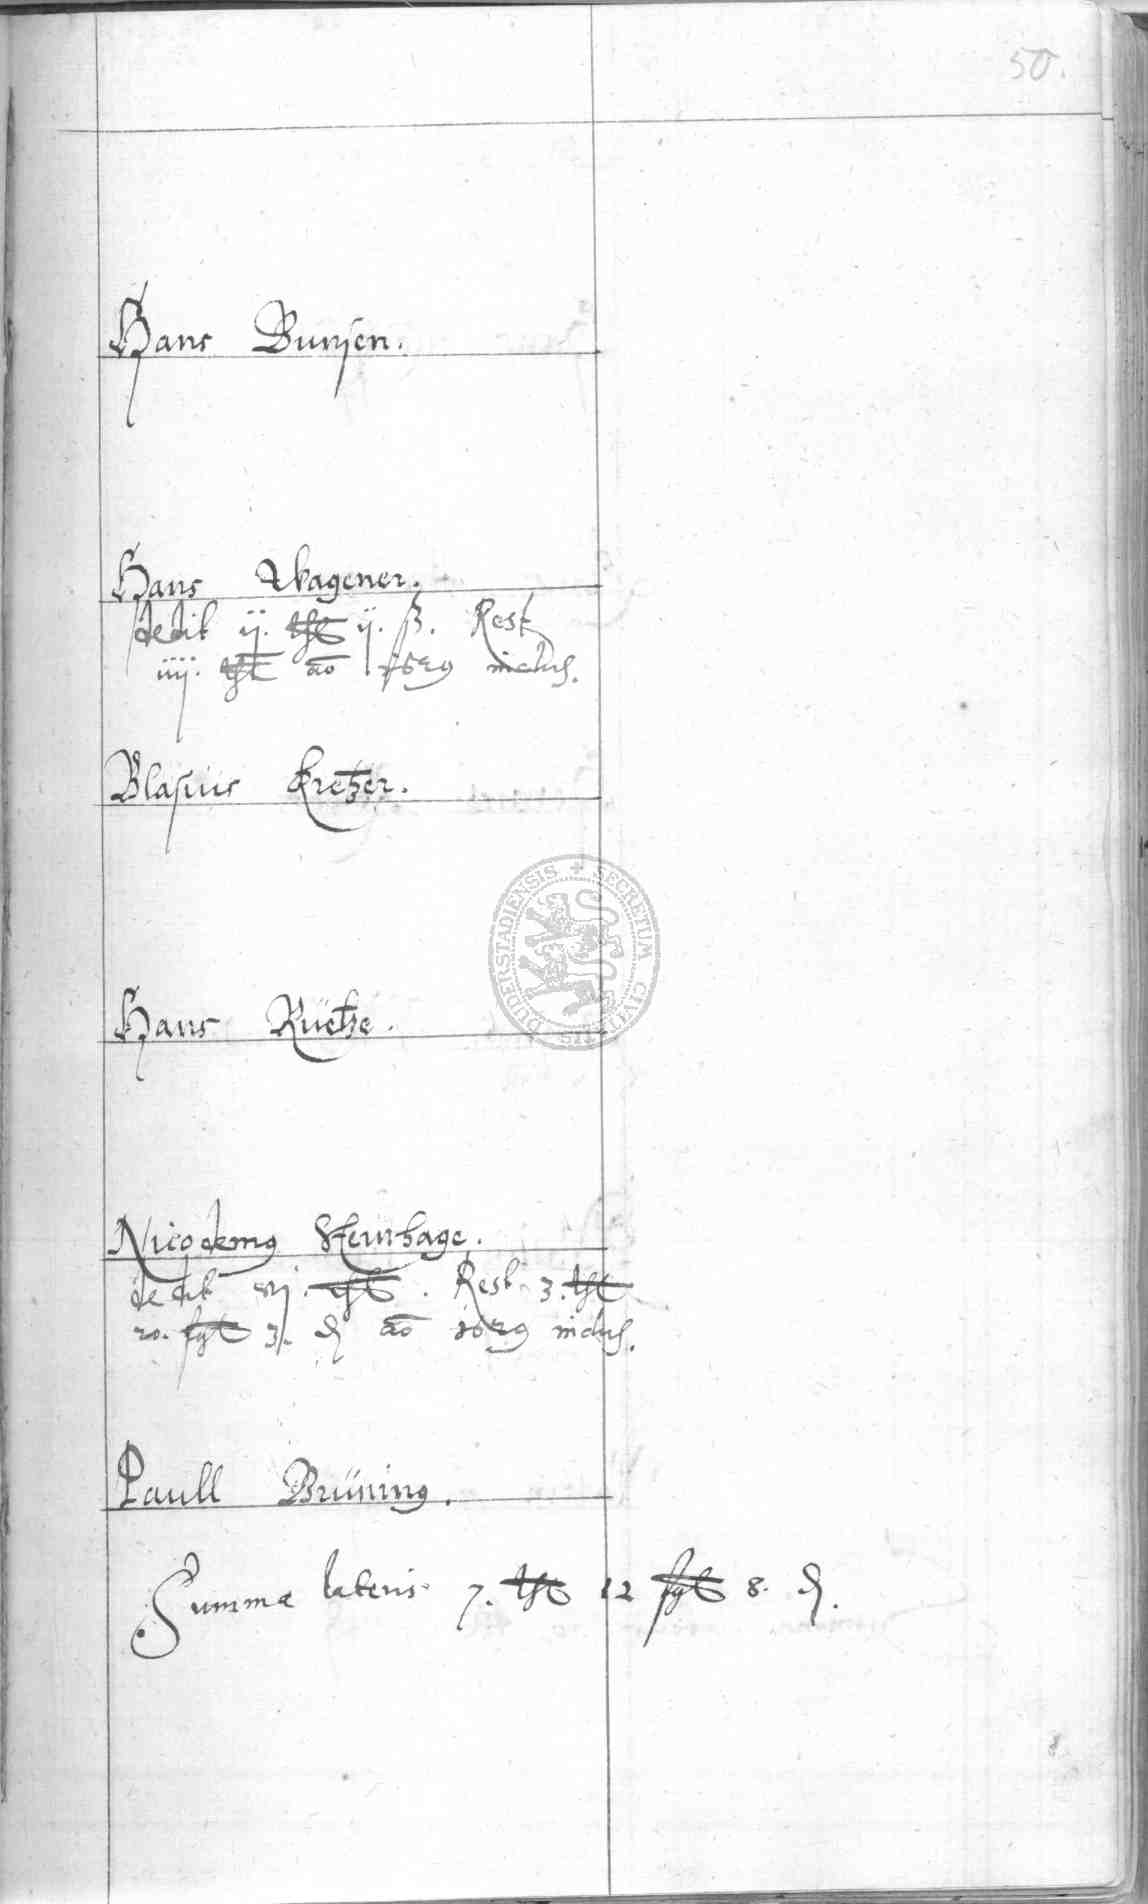 50.
Hans Bunsen.
Hans Wagener.
dedit ij. thl ij. ß. Rest
iiij. thl ao 1629 inclus.
Blasius Kretzer.
DUDERSTADIENSIS + SECRETUM CIVITATIS
Hans Küetze.
Nicodemus Steinhage.
dedit vj. thl. Rest 3. thl
20. fgl 3. ₰ ao 1629 inclus.
Paull Brüning.
Summa lateris 7. thl 12 fgl 8. ₰.